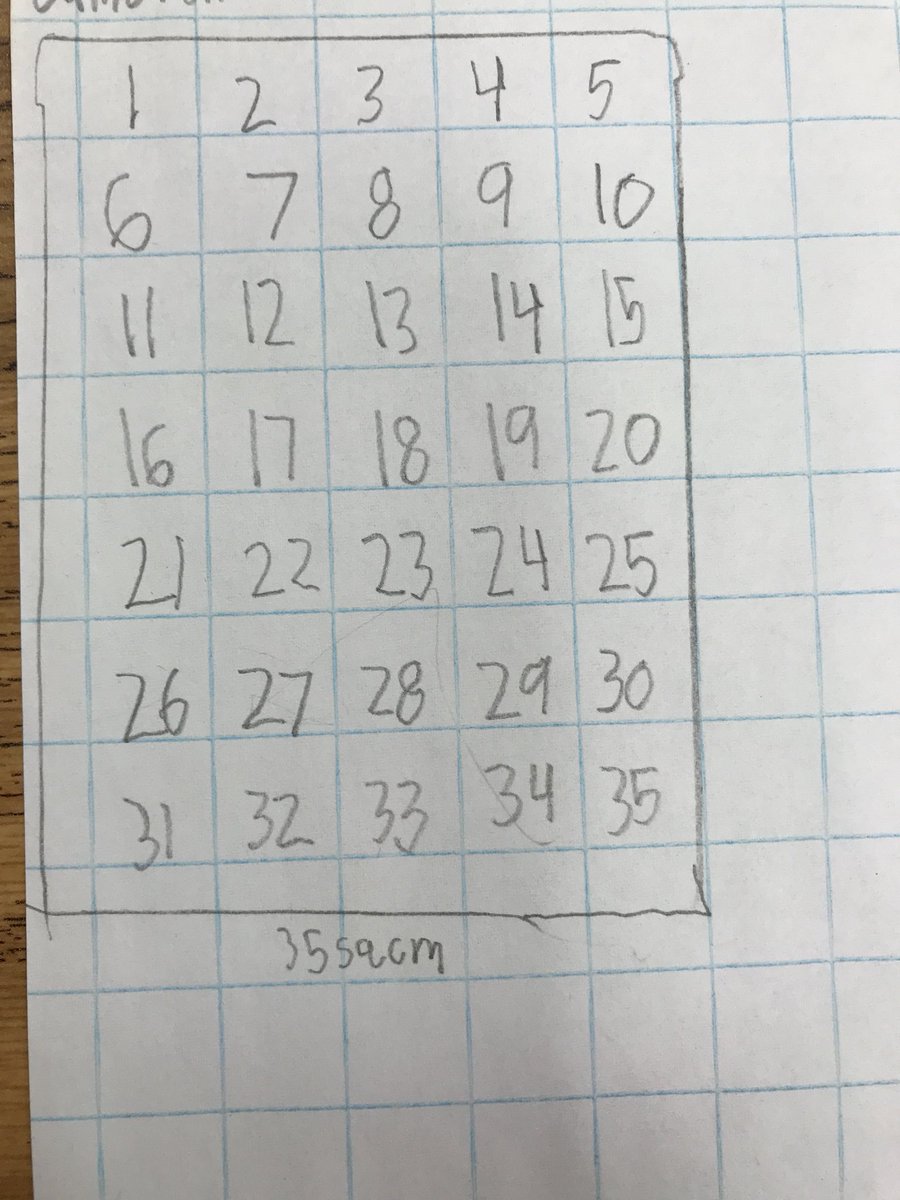 1 2 3 4 5
6 7 8 9 10
11 12 13 14 15
16 17 18 19 20
21 22 23 24 25
26 27 28 29 30
31 32 33 34 35
35 sq cm